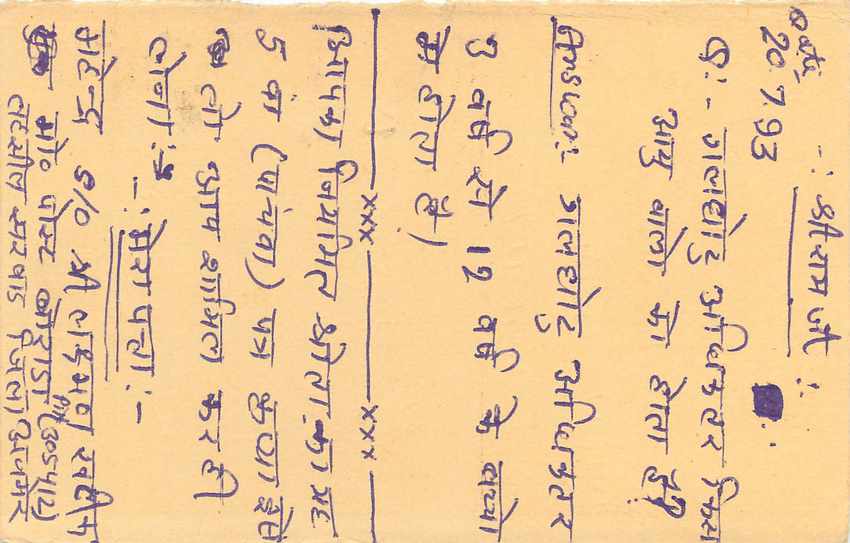 Date
20.7.93
-: श्री राम जी :-
Q:- गलघोटु अधिकतर किस
आयु वालो का होता है?
Answer:- गलघोटु अधिकतर
3 वर्ष से 12 वर्ष के बच्चो
मे होता है)
xxx xxx
आपका नियमित श्रोता का यह
5 वां (पांचवा) पत्र कृपया इसे
तो आप शामिल कर ही
लेना :-
-: मेरा पता :-
महेन्द्र S/o श्री लक्ष्मण खटीक
मो० पोस्ट बोराडा Pin (305412)
तहसील सरवाड जिला अजमेर